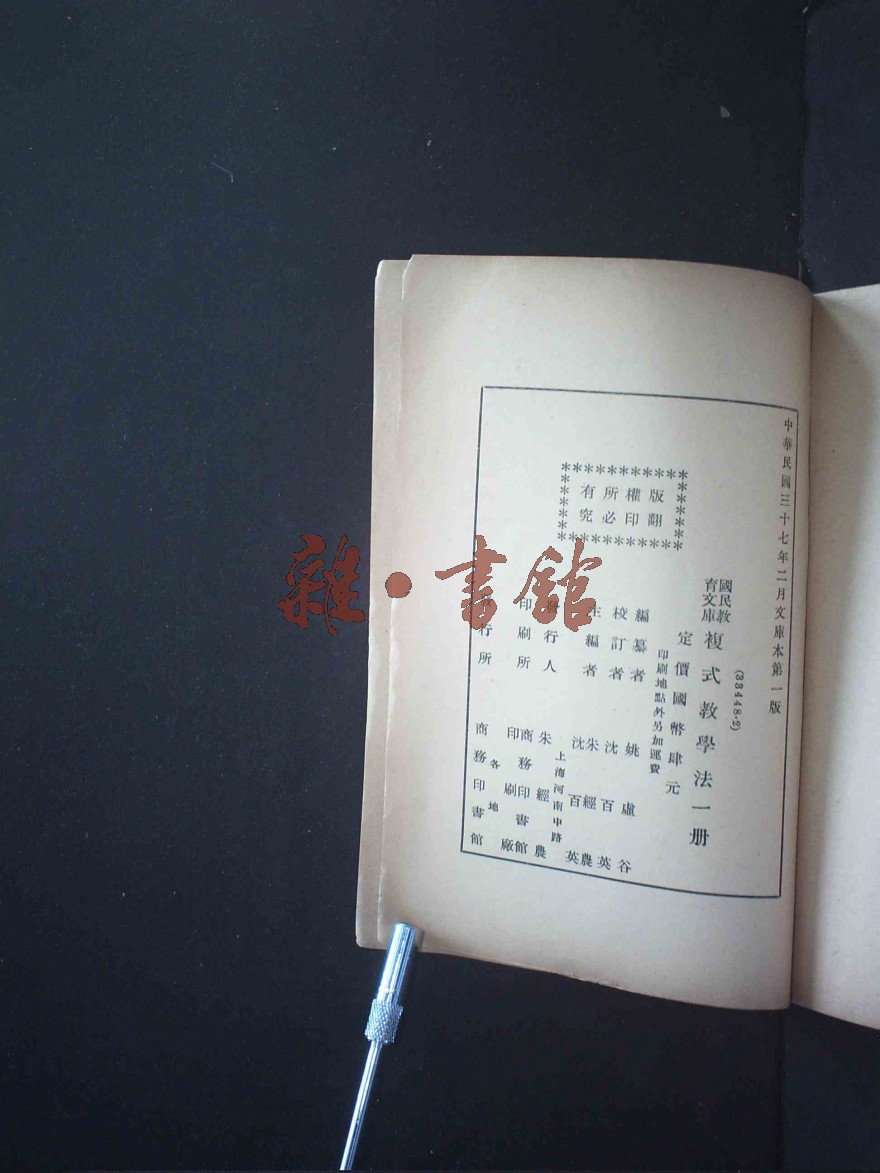 中華民國三十七年二月文庫本第一版
(33448·2)
國民教育文庫
複式教學法一册
定價國幣肆元
印刷地點外另加運費
編纂者 姚虛谷
校訂者 沈百英
主編者 朱經農 沈百英
發行人 朱經農
上海河南中路
印刷所 商務印書館印刷廠
發行所 商務印書館
各地
版權所有
翻印必究
雜·書館